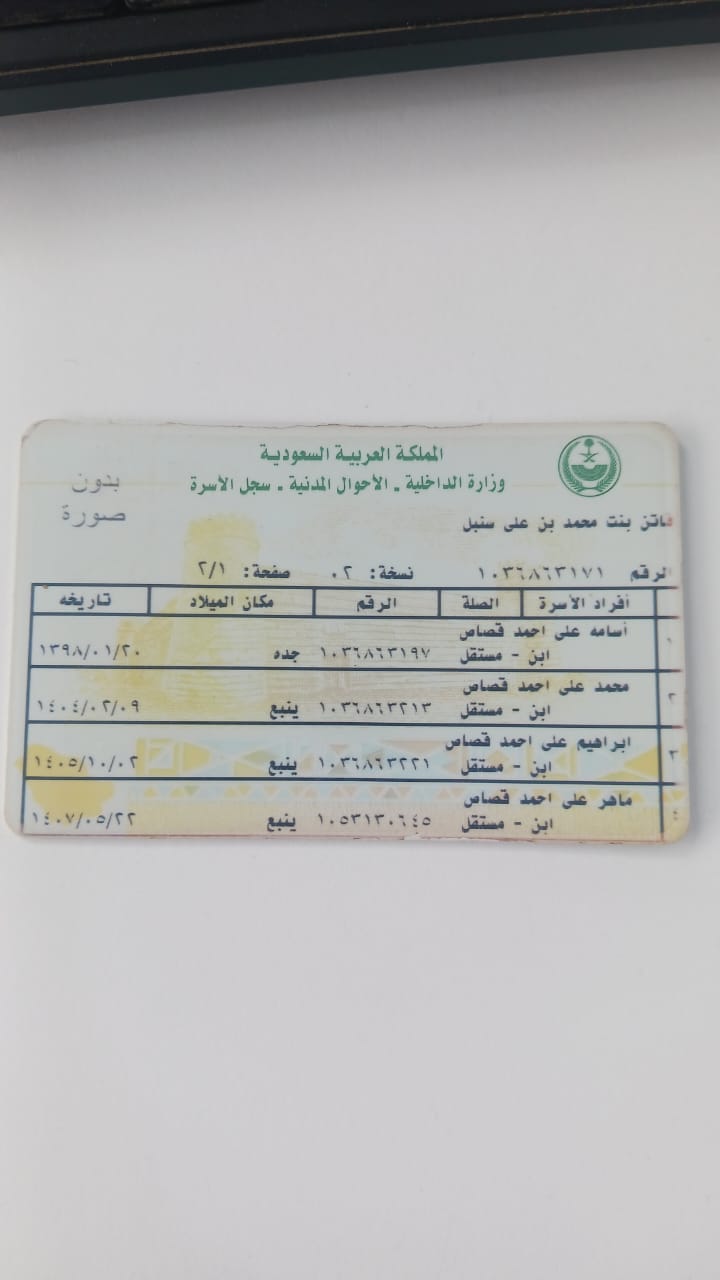 المملكة العربية السعودية
وزارة الداخلية - الأحوال المدنية - سجل الأسرة
بدون
صورة
فاتن بنت محمد بن على سنبل
الرقم ١٠٣٦٨٦٣١٧١ نسخة: ٠٢ صفحة: ٢/١
أفراد الأسرة الصلة الرقم مكان الميلاد تاريخه
١ أسامه على احمد قصاص
ابن - مستقل ١٠٣٦٨٦٣١٩٧ جده ١٣٩٨/٠١/٢٠
٢ محمد على احمد قصاص
ابن - مستقل ١٠٣٦٨٦٣٢١٣ ينبع ١٤٠٤/٠٢/٠٩
٣ ابراهيم على احمد قصاص
ابن - مستقل ١٠٣٦٨٦٣٢٢١ ينبع ١٤٠٥/١٠/٠٢
٤ ماهر على احمد قصاص
ابن - مستقل ١٠٥٣١٣٠٦٤٥ ينبع ١٤٠٧/٠٥/٢٢